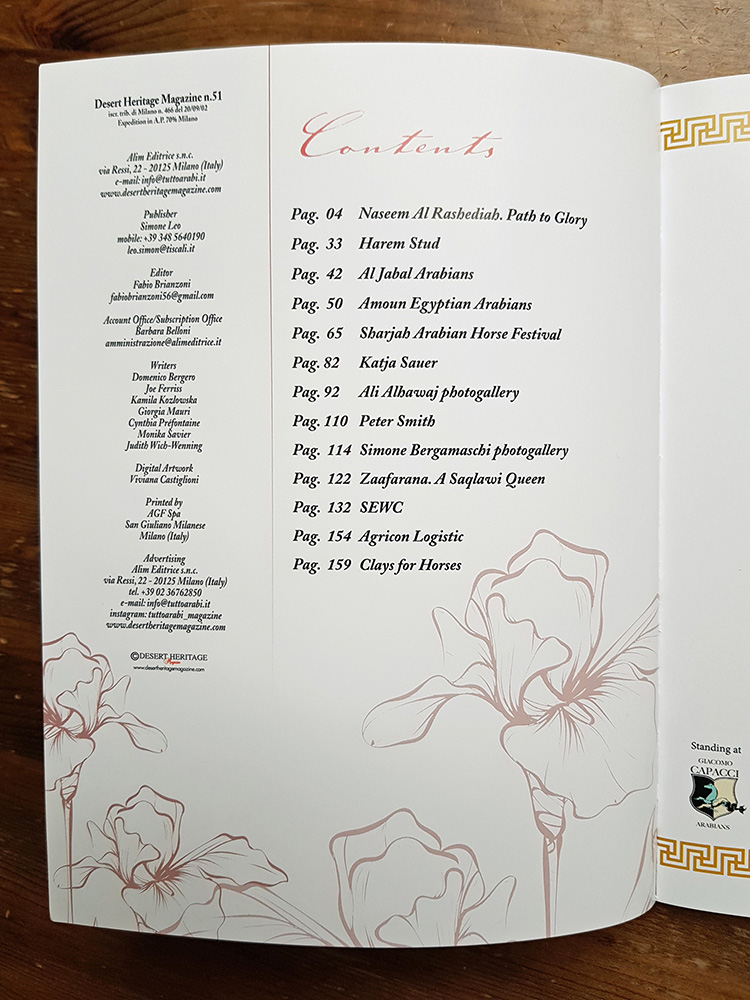 Desert Heritage Magazine n.51
iscr. trib. di Milano n. 466 del 20/09/02
Expedition in A.P. 70% Milano
Alim Editrice s.n.c.
via Ressi, 22 - 20125 Milano (Italy)
e-mail: info@tuttoarabi.it
www.desertheritagemagazine.com
Publisher
Simone Leo
mobile: +39 348 5640190
leo.simon@tiscali.it
Editor
Fabio Brianzoni
fabiobrianzoni56@gmail.com
Account Office/Subscription Office
Barbara Belloni
amministrazione@alimeditrice.it
Writers
Domenico Bergero
Joe Ferriss
Kamila Kozlowska
Giorgia Mauri
Cynthia Préfontaine
Monika Savier
Judith Wich-Wenning
Digital Artwork
Viviana Castiglioni
Printed by
AGF Spa
San Giuliano Milanese
Milano (Italy)
Advertising
Alim Editrice s.n.c.
via Ressi, 22 - 20125 Milano (Italy)
tel. +39 02 36762850
e-mail: info@tuttoarabi.it
instagram: tuttoarabi_magazine
www.desertheritagemagazine.com
©DESERT HERITAGE
Magazine
www.desertheritagemagazine.com
Contents
Pag. 04 Naseem Al Rashediah. Path to Glory
Pag. 33 Harem Stud
Pag. 42 Al Jabal Arabians
Pag. 50 Amoun Egyptian Arabians
Pag. 65 Sharjah Arabian Horse Festival
Pag. 82 Katja Sauer
Pag. 92 Ali Alhawaj photogallery
Pag. 110 Peter Smith
Pag. 114 Simone Bergamaschi photogallery
Pag. 122 Zaafarana. A Saqlawi Queen
Pag. 132 SEWC
Pag. 154 Agricon Logistic
Pag. 159 Clays for Horses
Standing at
GIACOMO
CAPACCI
ARABIANS